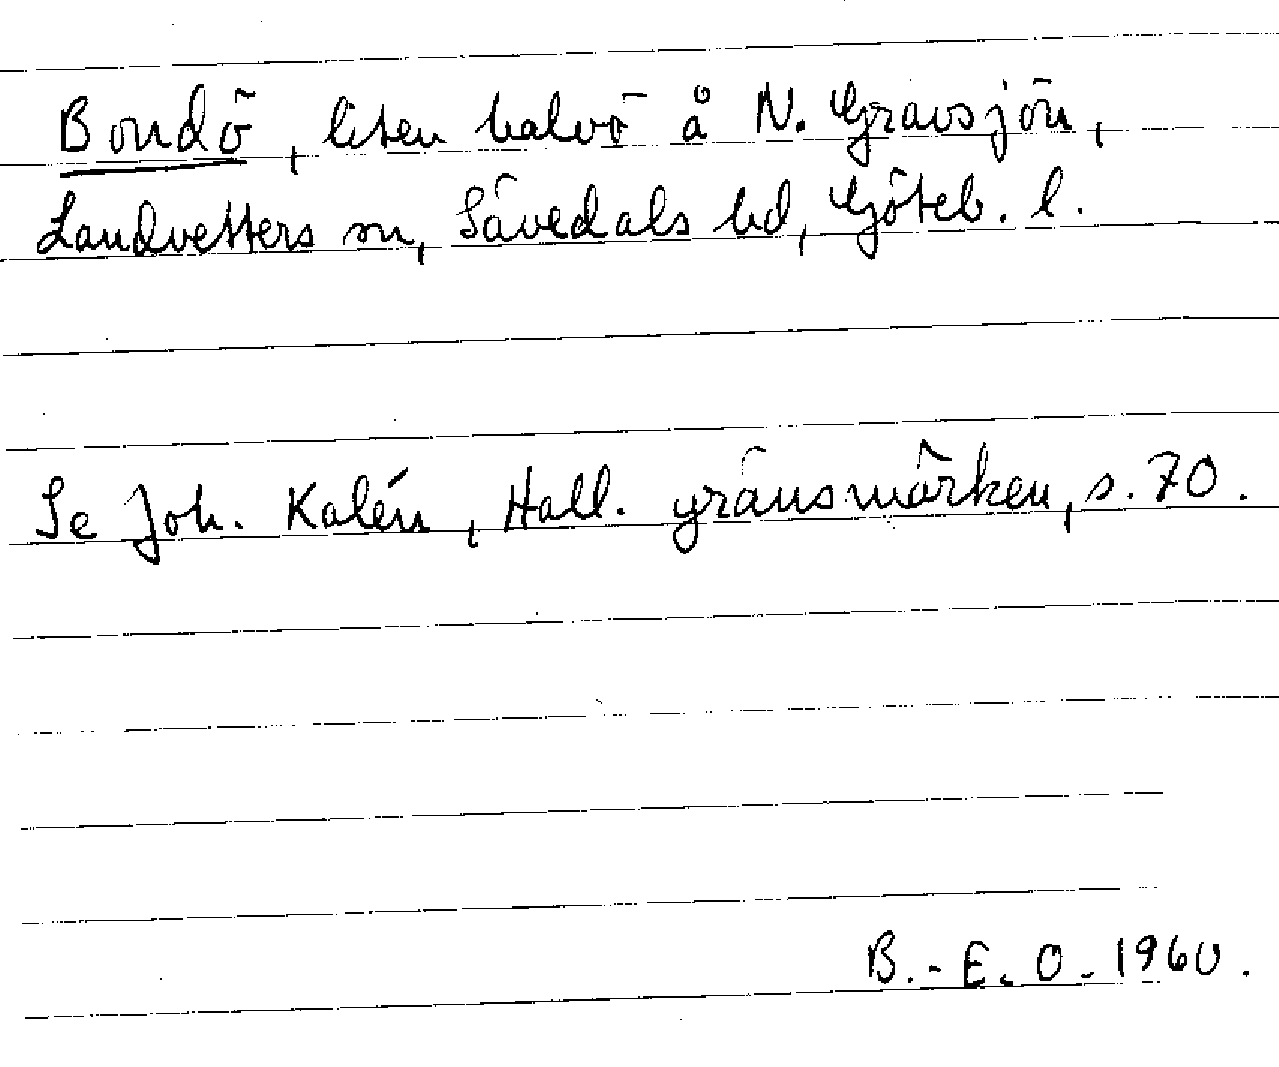 Bondö, liten halvö å N. Gravsjön,
Landvetters sn, Sävedals hd, Göteb. l.
Se Joh. Kalén, Hall. gränsmärken, s. 70.
B.-E. O. 1960.